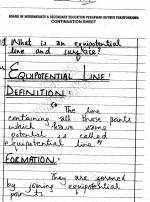 BOARD OF INTERMEDIATE & SECONDARY EDUCATION PESHAWAR KHYBER PAKHTUNKHWA
CONTINUATION SHEET
What is an equipotential
line and surface?
EQUIPOTENTIAL LINE:
DEFINITION:
"The line
containing all those points
which have same
potential is called
equipotential line."
FORMATION:
They are formed
by joining equipotential
points.